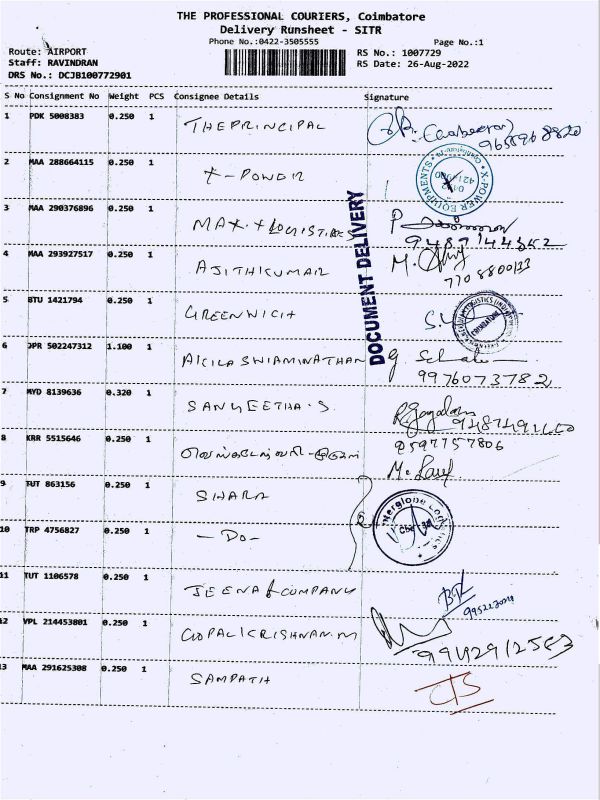 THE PROFESSIONAL COURIERS, Coimbatore
Delivery Runsheet - SITR
Phone No.:0422-3505555
Page No.:1
Route: AIRPORT
RS No.: 1007729
Staff: RAVINDRAN
RS Date: 26-Aug-2022
DRS No.: DCJB100772901
S No Consignment No Weight PCS Consignee Details Signature
1 PDK 5008383 0.250 1 THE PRINCIPAL
2 MAA 288664115 0.250 1 X-POWER
X-POWER EQUIPMENTS
3 MAA 290376896 0.250 1 MAX.X LOGISTICS
DOCUMENT DELIVERY
4 MAA 293927517 0.250 1 AJITHKUMAR
5 BTU 1421794 0.250 1 GREENWICH
COIMBATORE
6 JPR 502247312 1.100 1 AKILA SWIAMINATHAN
9976073782
7 MYD 8139636 0.320 1 SANGEETHA.S
8 KRR 5515646 0.250 1
9597757806
9 TUT 863156 0.250 1 SHARA
10 TRP 4756827 0.250 1 -DO-
11 TUT 1106578 0.250 1 JEENA & COMPANY
12 VPL 214453801 0.250 1 GOPALKRISHNAN.M
9942912583
13 MAA 291625308 0.250 1 SAMPATH